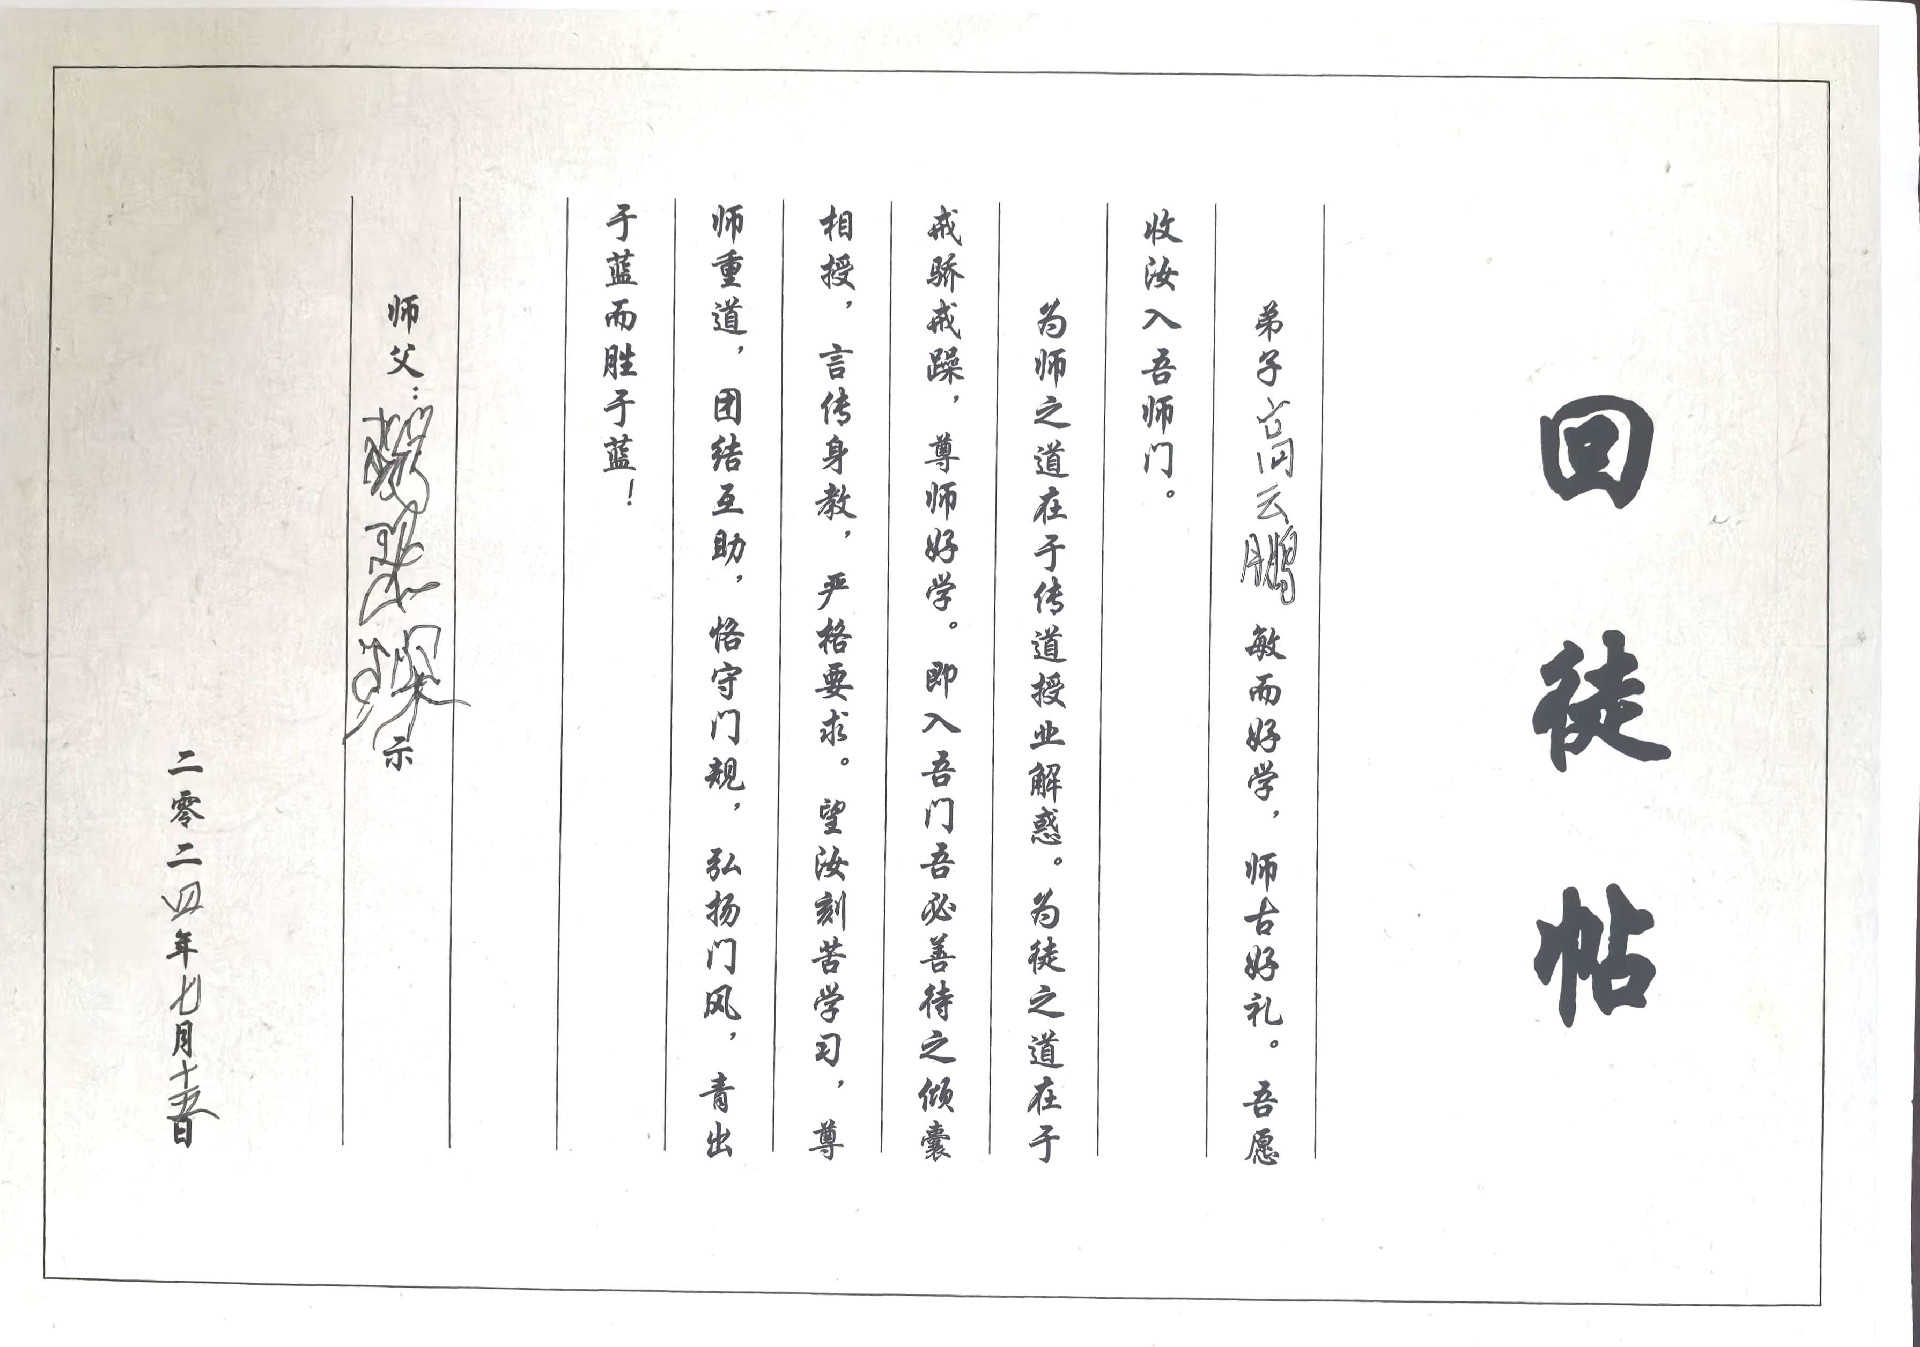 回徒帖
弟子官同云鹏敏而好学，师古好礼。吾愿
收汝入吾师门。
为师之道在于传道授业解惑。为徒之道在于
戒骄戒躁，尊师好学。即入吾门吾必善待之倾囊
相授，言传身教，严格要求。望汝刻苦学习，尊
师重道，团结互助，恪守门规，弘扬门风，青出
于蓝而胜于蓝！
师父：示
二零二四年七月十五日